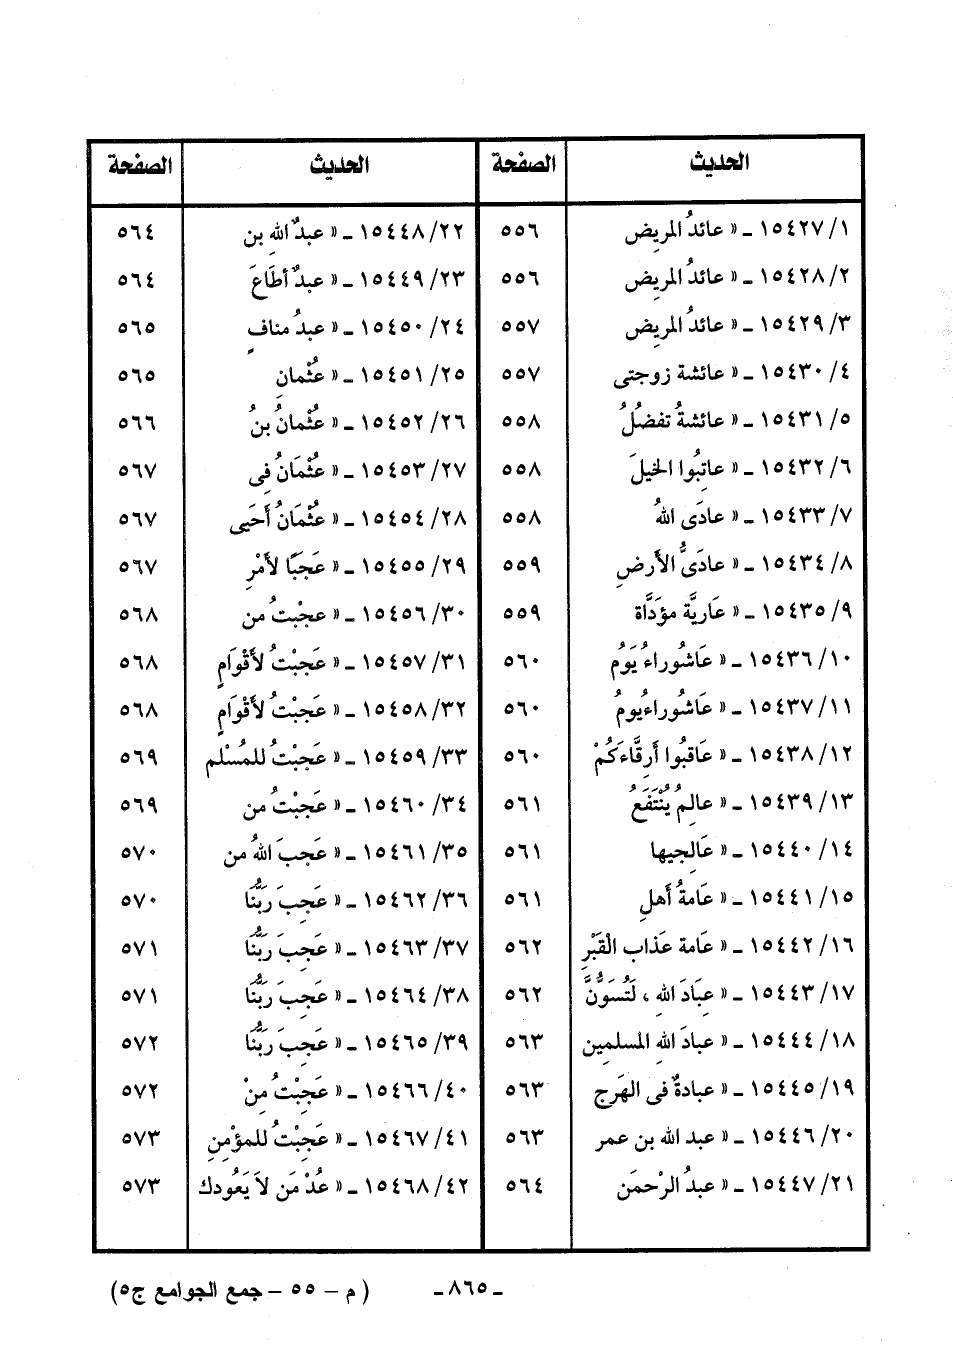 الحديث الصفحة الحديث الصفحة
١٥٤٢٧/١ ـ « عائدُ المريض ٥٥٦ ١٥٤٤٨/٢٢ ـ « عبدُ اللهِ بن ٥٦٤
١٥٤٢٨/٢ ـ « عائدُ المريض ٥٥٦ ١٥٤٤٩/٢٣ ـ « عبدٌ أطَاعَ ٥٦٤
١٥٤٢٩/٣ ـ « عائدُ المريض ٥٥٧ ١٥٤٥٠/٢٤ ـ « عبدُ منافٍ ٥٦٥
١٥٤٣٠/٤ ـ « عائشة زوجتى ٥٥٧ ١٥٤٥١/٢٥ ـ « عُثْمانِ ٥٦٥
١٥٤٣١/٥ ـ « عائشةُ تفضُلُ ٥٥٨ ١٥٤٥٢/٢٦ ـ « عُثْمانُ بنُ ٥٦٦
١٥٤٣٢/٦ ـ « عاتِبُوا الخيلَ ٥٥٨ ١٥٤٥٣/٢٧ ـ « عُثْمَانُ فِى ٥٦٧
١٥٤٣٣/٧ ـ « عادَى اللهُ ٥٥٨ ١٥٤٥٤/٢٨ ـ « عُثْمَانُ أَحَيى ٥٦٧
١٥٤٣٤/٨ ـ « عادَىُّ الأَرضِ ٥٥٩ ١٥٤٥٥/٢٩ ـ « عَجَبًا لأَمْرِ ٥٦٧
١٥٤٣٥/٩ ـ « عَاريَّة مؤدَّاة ٥٥٩ ١٥٤٥٦/٣٠ ـ « عجِبْتُ من ٥٦٨
١٥٤٣٦/١٠ ـ « عَاشُوراءُ يَوَمُ ٥٦٠ ١٥٤٥٧/٣١ ـ « عَجِبْتُ لأَقْوَامٍ ٥٦٨
١٥٤٣٧/١١ ـ « عَاشُوراءُ يومُ ٥٦٠ ١٥٤٥٨/٣٢ ـ « عَجِبْتُ لأَقْوَامٍ ٥٦٨
١٥٤٣٨/١٢ ـ « عَاقبُوا أَرقَّاءَكُمْ ٥٦٠ ١٥٤٥٩/٣٣ ـ « عَجِبْتُ للمُسْلم ٥٦٩
١٥٤٣٩/١٣ ـ « عالِمُ يُنْتَفَعُ ٥٦١ ١٥٤٦٠/٣٤ ـ « عَجِبْتُ من ٥٦٩
١٥٤٤٠/١٤ ـ « عَالِجيها ٥٦١ ١٥٤٦١/٣٥ ـ « عَجِبَ اللهُ من ٥٧٠
١٥٤٤١/١٥ ـ « عَامةُ أهلِ ٥٦١ ١٥٤٦٢/٣٦ ـ « عَجِبَ رَبُّنَا ٥٧٠
١٥٤٤٢/١٦ ـ « عَامة عَذاب الْقَبْرِ ٥٦٢ ١٥٤٦٣/٣٧ ـ « عَجِبَ رَبُّنَا ٥٧١
١٥٤٤٣/١٧ ـ « عِبَادَ اللهِ ، لَتُسَوُّنَّ ٥٦٢ ١٥٤٦٤/٣٨ ـ « عَجِبَ رَبُّنَا ٥٧١
١٥٤٤٤/١٨ ـ « عبادَ اللهِ المسلمِين ٥٦٣ ١٥٤٦٥/٣٩ ـ « عَجِبَ رَبُّنَا ٥٧٢
١٥٤٤٥/١٩ ـ « عبادةٌ فى الهَرج ٥٦٣ ١٥٤٦٦/٤٠ ـ « عَجِبْتُ مِنْ ٥٧٢
١٥٤٤٦/٢٠ ـ « عبد الله بن عمر ٥٦٣ ١٥٤٦٧/٤١ ـ « عَجِبْتُ للمؤْمِنِ ٥٧٣
١٥٤٤٧/٢١ ـ « عبدُ الرحْمَن ٥٦٤ ١٥٤٦٨/٤٢ ـ « عُدْ مَن لاَ يَعُودك ٥٧٣
ـ ٨٦٥ ـ ( م – ٥٥ – جمع الجوامع ج٥)